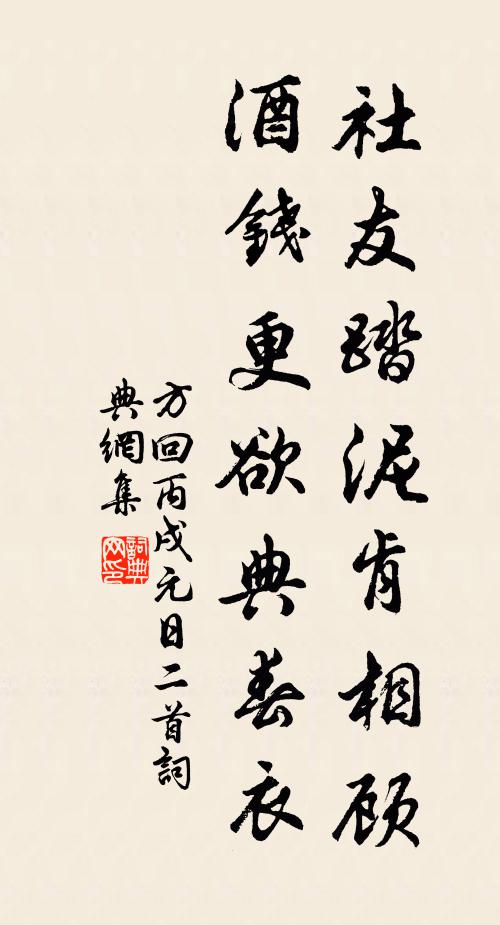 社友踏泥肯相顾
酒錢更欲典春衣
方回丙戌元日二首詞
典網集
詞典
网印